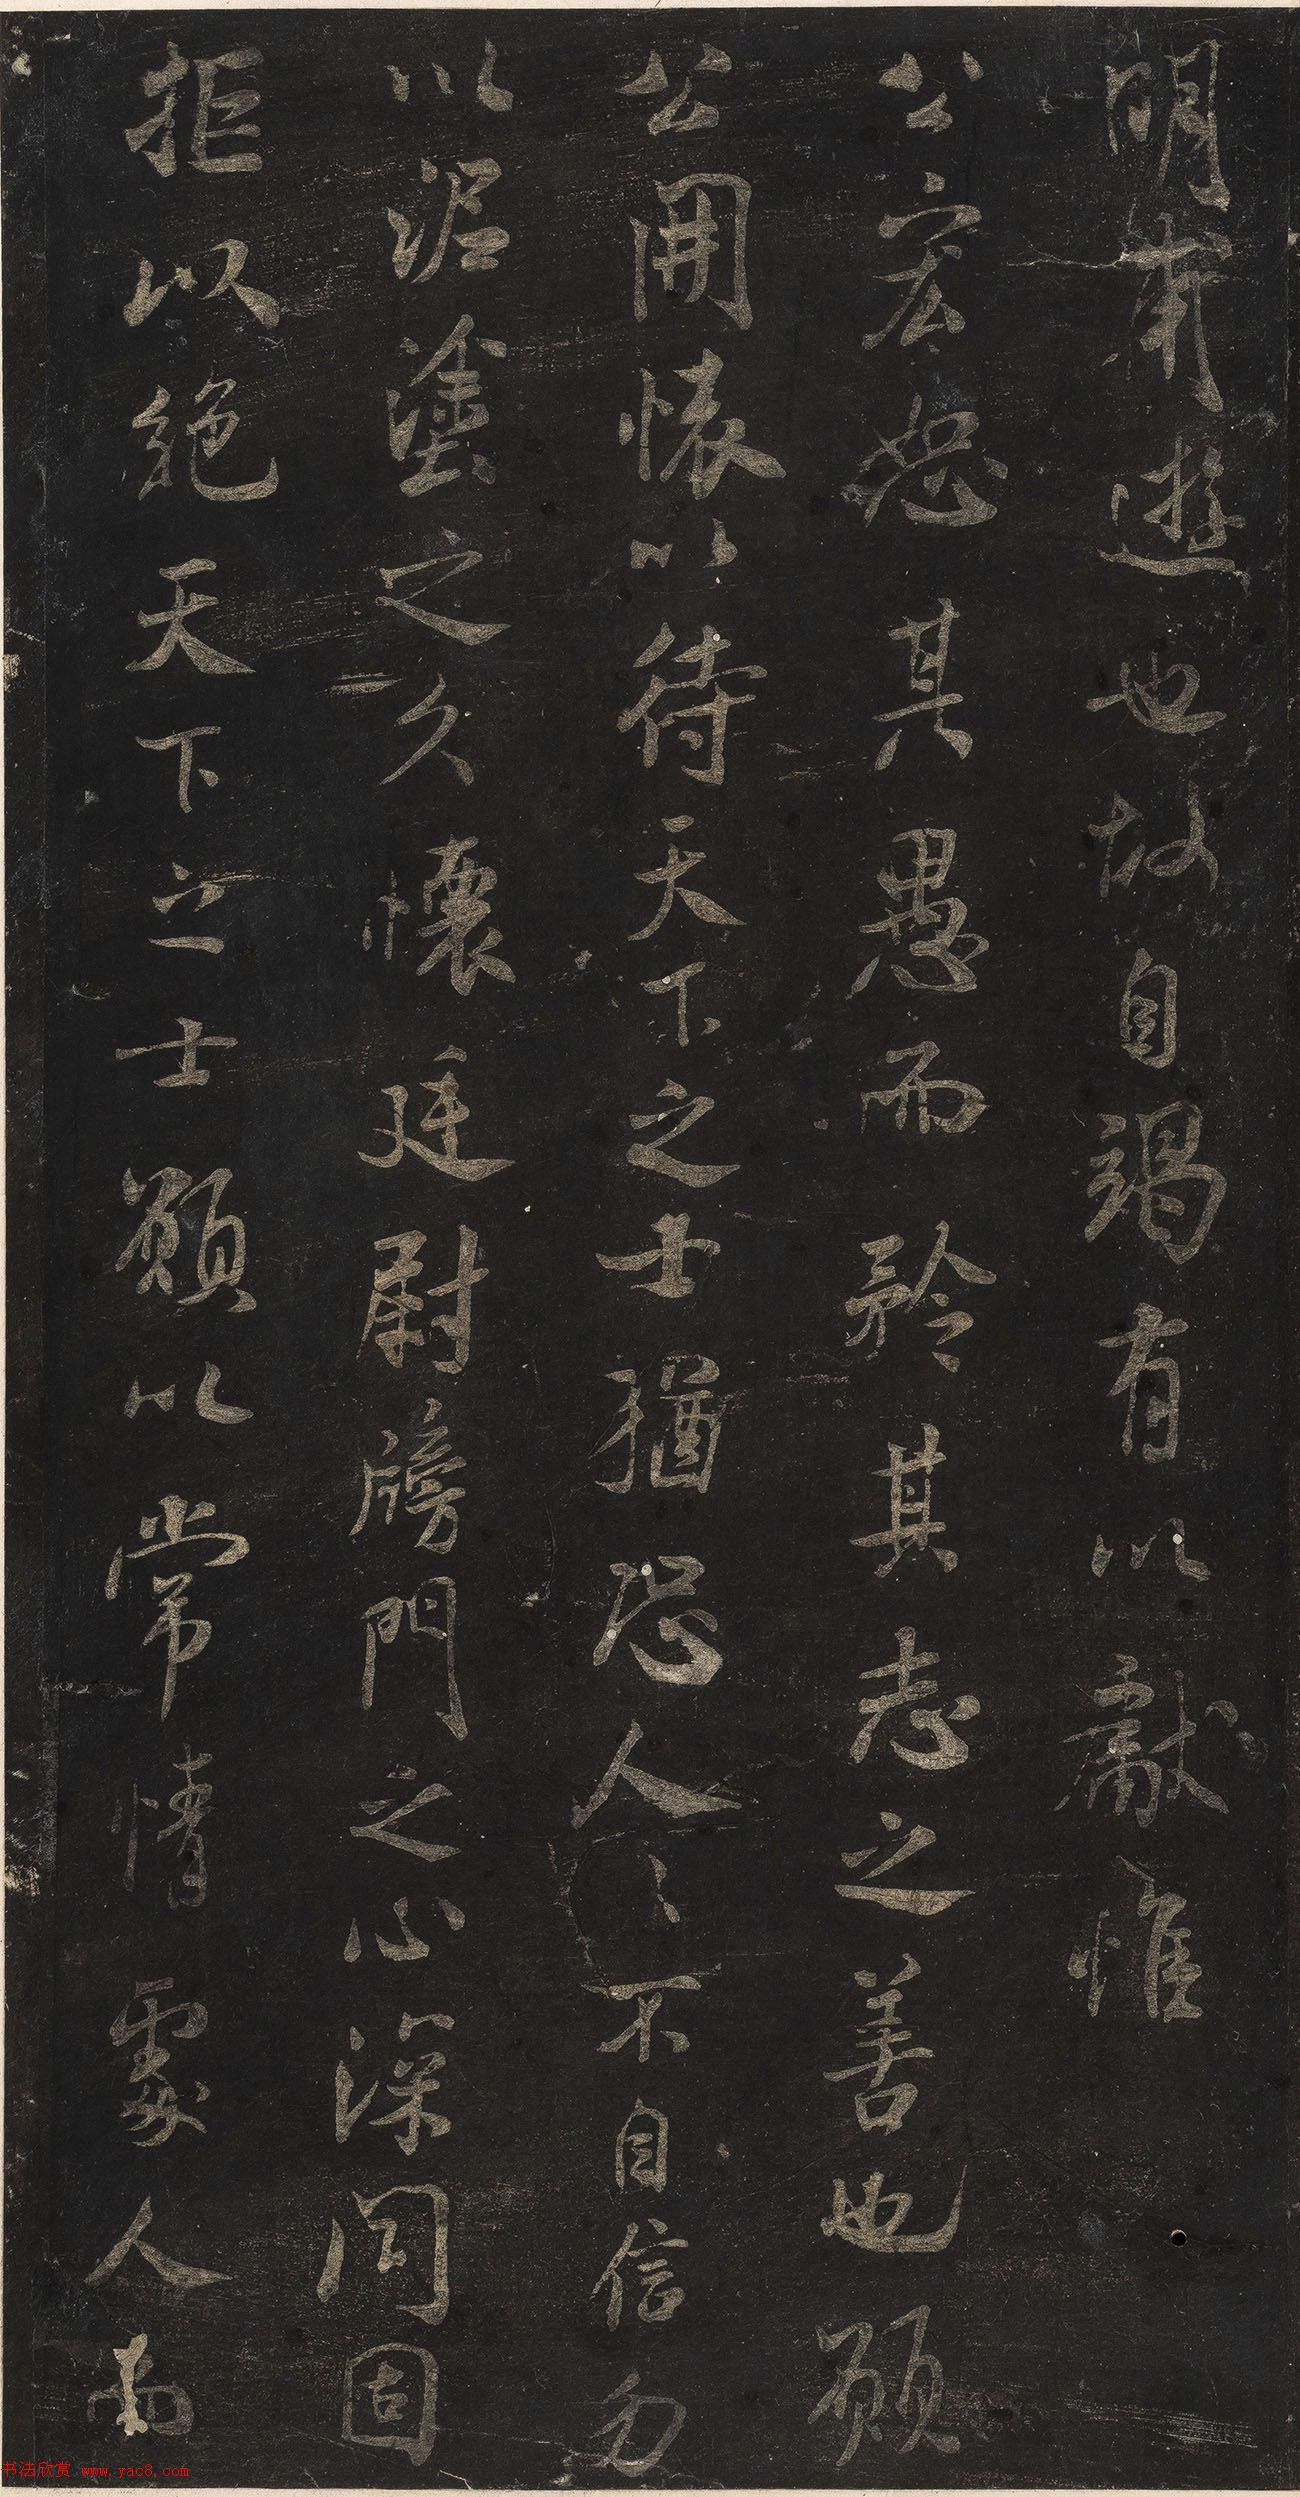 明甫遊也故自竭有以獻惟
公宏恕其愚而矜其志之善也願
公開懷以待天下之士猶恐人〻不自信勿
以泥塗之久懷廷尉牓門之心深閉固
拒以絕天下之士願以常情處人
书法欣赏 www.yac8.com